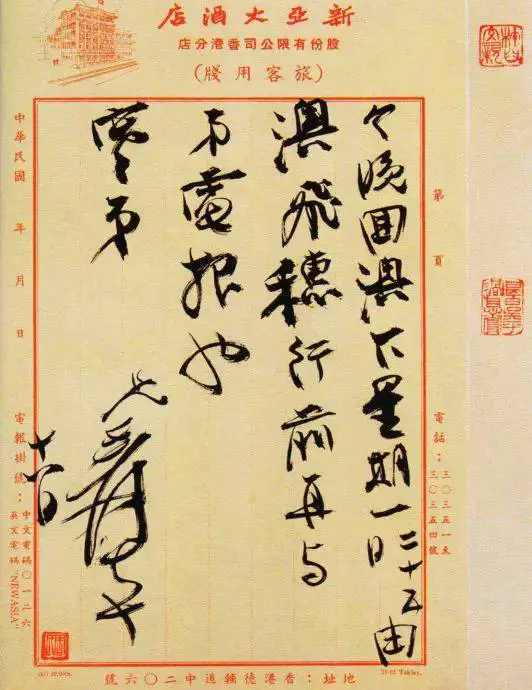 新亞大酒店
股份有限公司香港分店
(旅客用牋)
第 頁
電話：三〇三五一至三〇三五四號
今晚回澳下星期一二十五日由
澳飛穗行前再与
弟電報也
弟
兄爰
中華民國 年 月 日
電報掛號：中文電碼〇一二六
英文電碼 "NEWASIA"
地址：香港德輔道中二〇六號